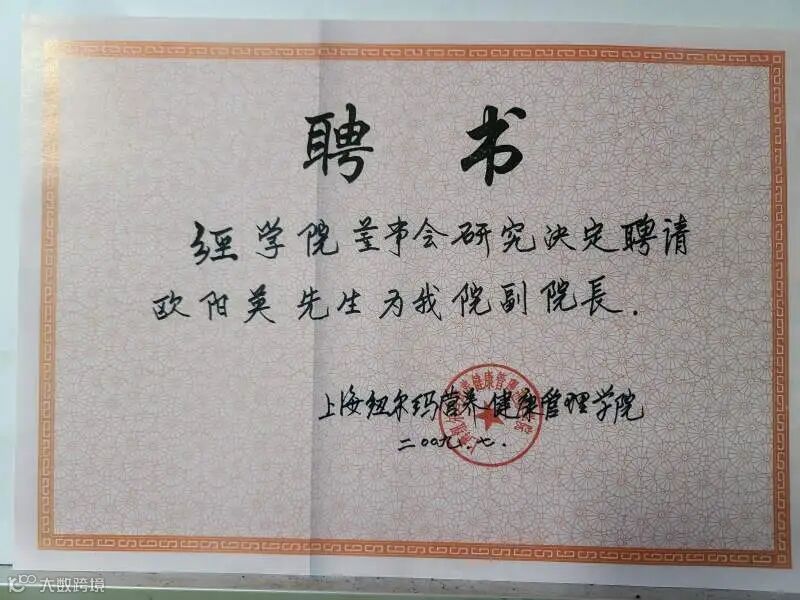 聘书
经学院董事会研究决定聘请
欧阳英先生为我院副院長.
上海纽尔玛营养健康管理学院
二00九.七.
大数跨境